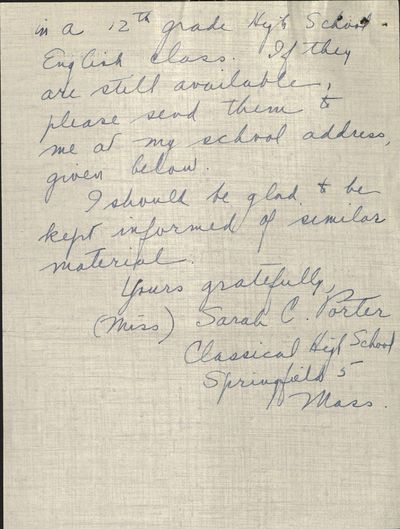 in a 12th grade High School
English class. If they
are still available,
please send them to
me at my school address,
given below.
I should be glad to be
kept informed of similar
material.
Yours gratefully,
(Miss) Sarah C. Porter
Classical High School
Springfield 5
Mass.